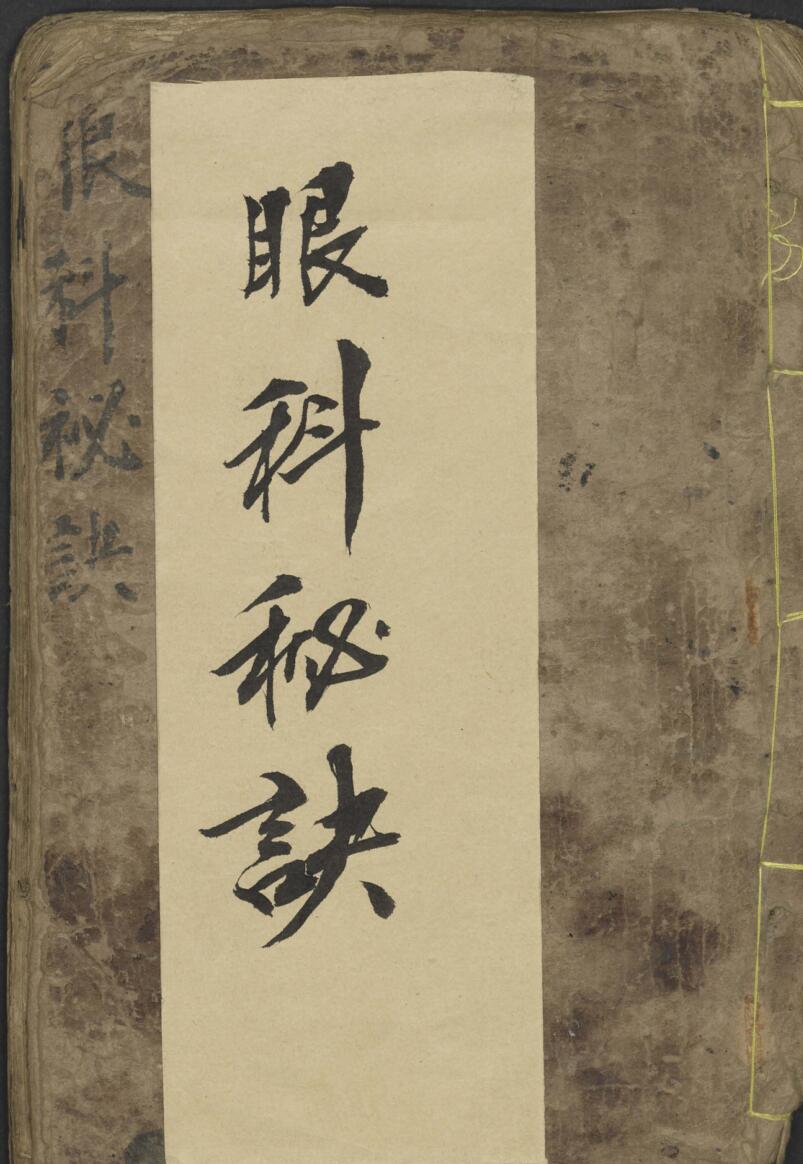 眼科秘訣
眼科秘訣